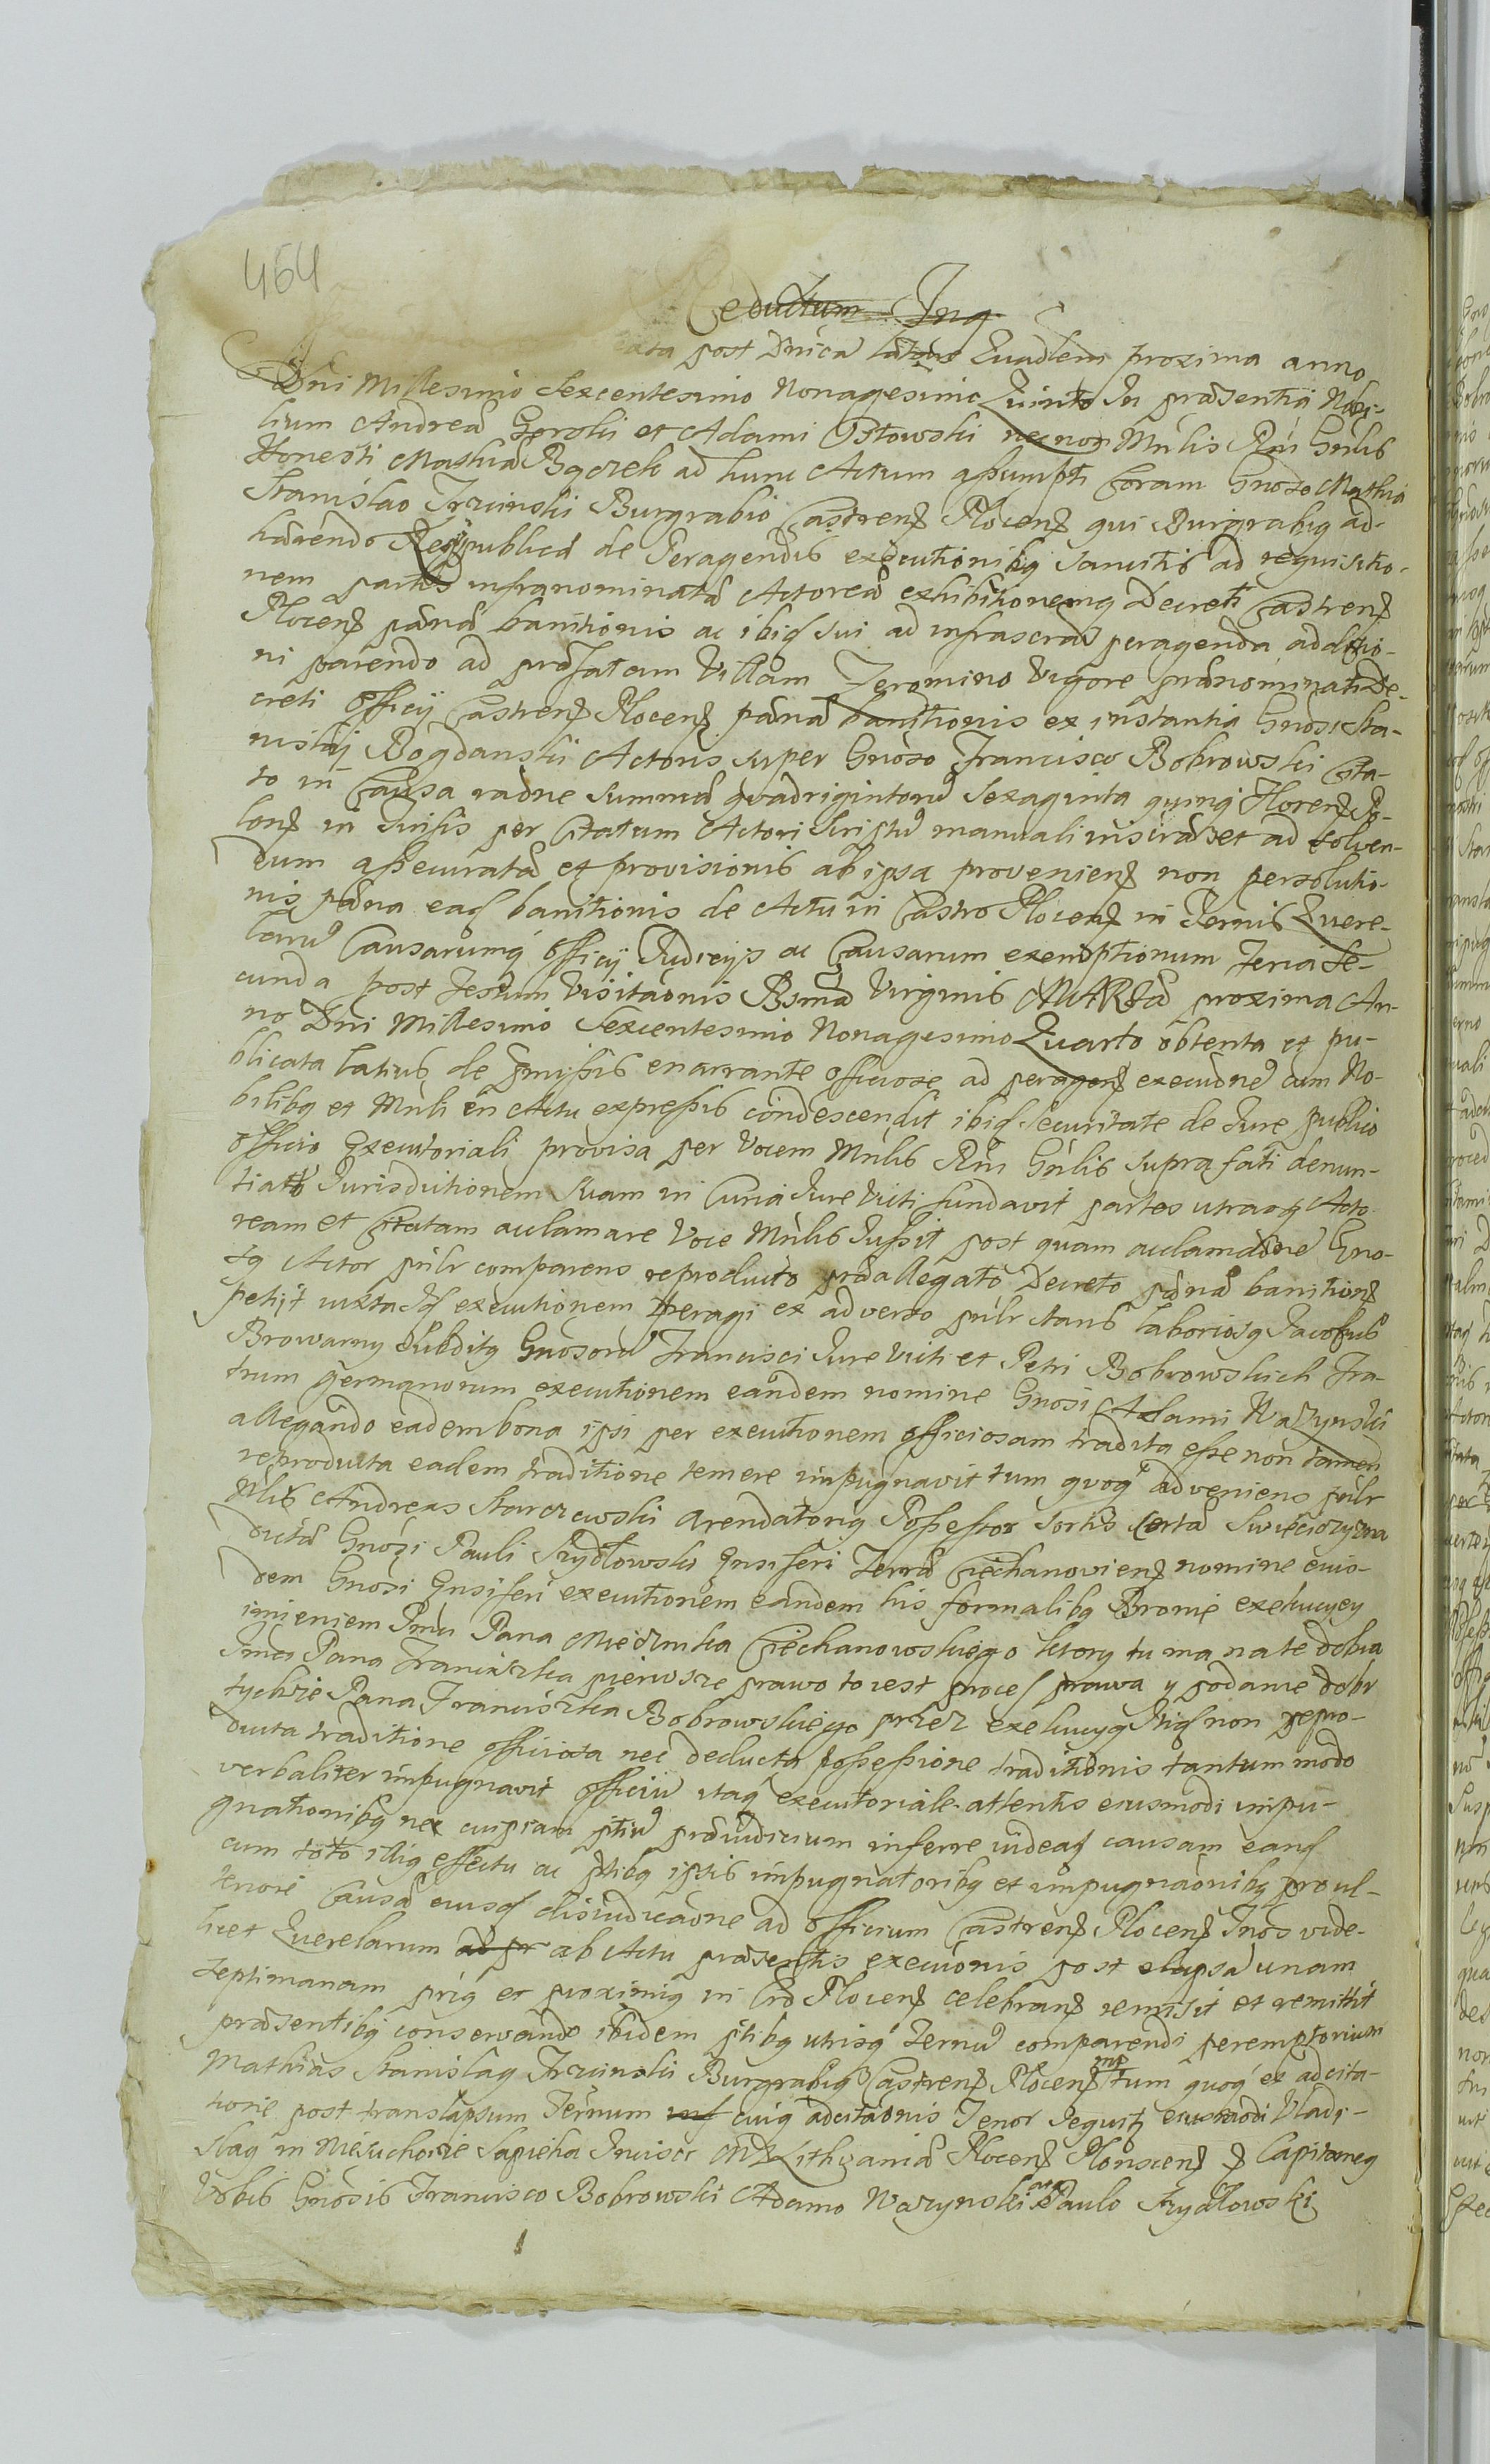 464
Reductum Inq
post Dnica Laetare Quadlem proxima anno
Dni Millesimo Sexcentesimo Nonagesimo Quinto In praesentia Nobi-
lium Andreae Gorski et Adami Pstowski necnon Mnlis Rni Gnlis
Honesti Mathia Bączek ad hunc Actum assumpti Coram Gnoso Mathia
Stanislao Trzcinski Burgrabio Castren Plocen qui Burgrabiq ad-
haerendo Reipublicae de Peragendis executionibq sancitis ad requisitio-
nem partis infranominatae Actoreae exhibitionemq Decreti Castren
Plocen paenae banitionis ac ibid sui ad infrascrae peragenda additio-
ni parendo ad praefatam Villam Jeromino Vigore praenominati De-
creti Officij Castren Plocen paenae banitionis ex instantia Gnosi Sta-
nislaj Bogdanski Actoris super Gnoso Francisco Bobrowski Cita-
to in Causa raone summae quadrigintoru Sexaginta quinq Floren Po-
lon in Scisis per Citatum Actori Scriptu manuali inscrae et ad solven-
dum assecuratae et provisionis ab ipsa provenien non persolutio-
nis paena ead banitionis de Actu in Castro Plocen in Termis Quere-
laru Causarumq Officij Judicijs ac Causarum exemptionum Feria Se-
cunda post Festum Visitaonis Bsmae Virginis MARIAE proxima An-
no Dni Millesimo Sexcentesimo Nonagesimo Quarto obtenta et pu-
blicata latius de pmissis enarrante officiose ad peragen execuone cum No-
bilibq et Mnli in Actu expressis condescendit ibid Securitate de Jure publico
officio Executoriali provisa per Vocem Mnlis Rni Gnlis supra fati denun-
tiato Jurisdictionem Suam in Curia Jure Victi fundavit partes utrasq Acto-
ream et Citatam acclamare Voce Mnlis Jussit post quam acclamaone Gno-
sq Actor pnlr comparens reproducto praeallegato Decreto paenae banition
petijt iuxta Id executionem peragi ex adverso pnlr stans Laboriosq Jacobus
Browarny subditq Gnosoru Francisci Jure Victi et Petri Bobrowskich Fra-
trum germanorum executionem eandem nomine Gnosi Adami Wazynski
allegando eadem bona ipsi per executionem officiosam tradita esse non tamen
reproducta eadem traditione temere impugnavit tum quoq adveniens pnlr
Nlis Andreas Starczewski arendatoriq Possessor sortis certae Swięciczyzna
dictae Gnosi Pauli Szydłowski Ensiferi Terrae Ciechanovien nomine eius-
dem Gnosi Ensiferi executionem eandem his formalibq Bronie exekucyey
imieniem Jmci Pana Miecznika Ciechanowskiego ktory tu ma na te dobra
Jmci Pana Franciszka pierwsze prawo to iest proces prawa y podanie dobr
tychze Pana Franciszka Bobrowskiego przez exekucyą Itid non repro-
ducta traditione officiosa nec deducta possessione traditionis tantummodo
verbaliter impugnavit Officiu itaq executoriale attentis eiusmodi impu-
gnationibq nec cuipiam ptiu praeiudicium inferre videas causam eand
cum toto illiq effectu ac ptibq ipsis impugnatoribq et impugnaonibq pro ul-
teriori Causae eiusd disiudicaone ad Officium Castren Plocen Inos vide-
licet Querelarum ad pr ab Actu praesentis execuonis post elapsa unam
septimanam priq et proximiq in Cro Plocen celebran remisit et remittit
praesentibq conservando ibidem ptibq utrisq Termu comparendi peremptorium
Mathias Stanislaq Trzcinski Burgrabiq Castren Plocen mp tum quoq ex adcita-
tione post translapsum Termum cuiq adcitaonis Tenor Sequit eiusmodi Vladi-
slaq in Miesichosze Sapieha Incisor MD Lithvaniae Plocen Plonscen Capitaneq
Vobis Gnosis Francisco Bobrowski Adamo Wazynski Paulo Szydłowski